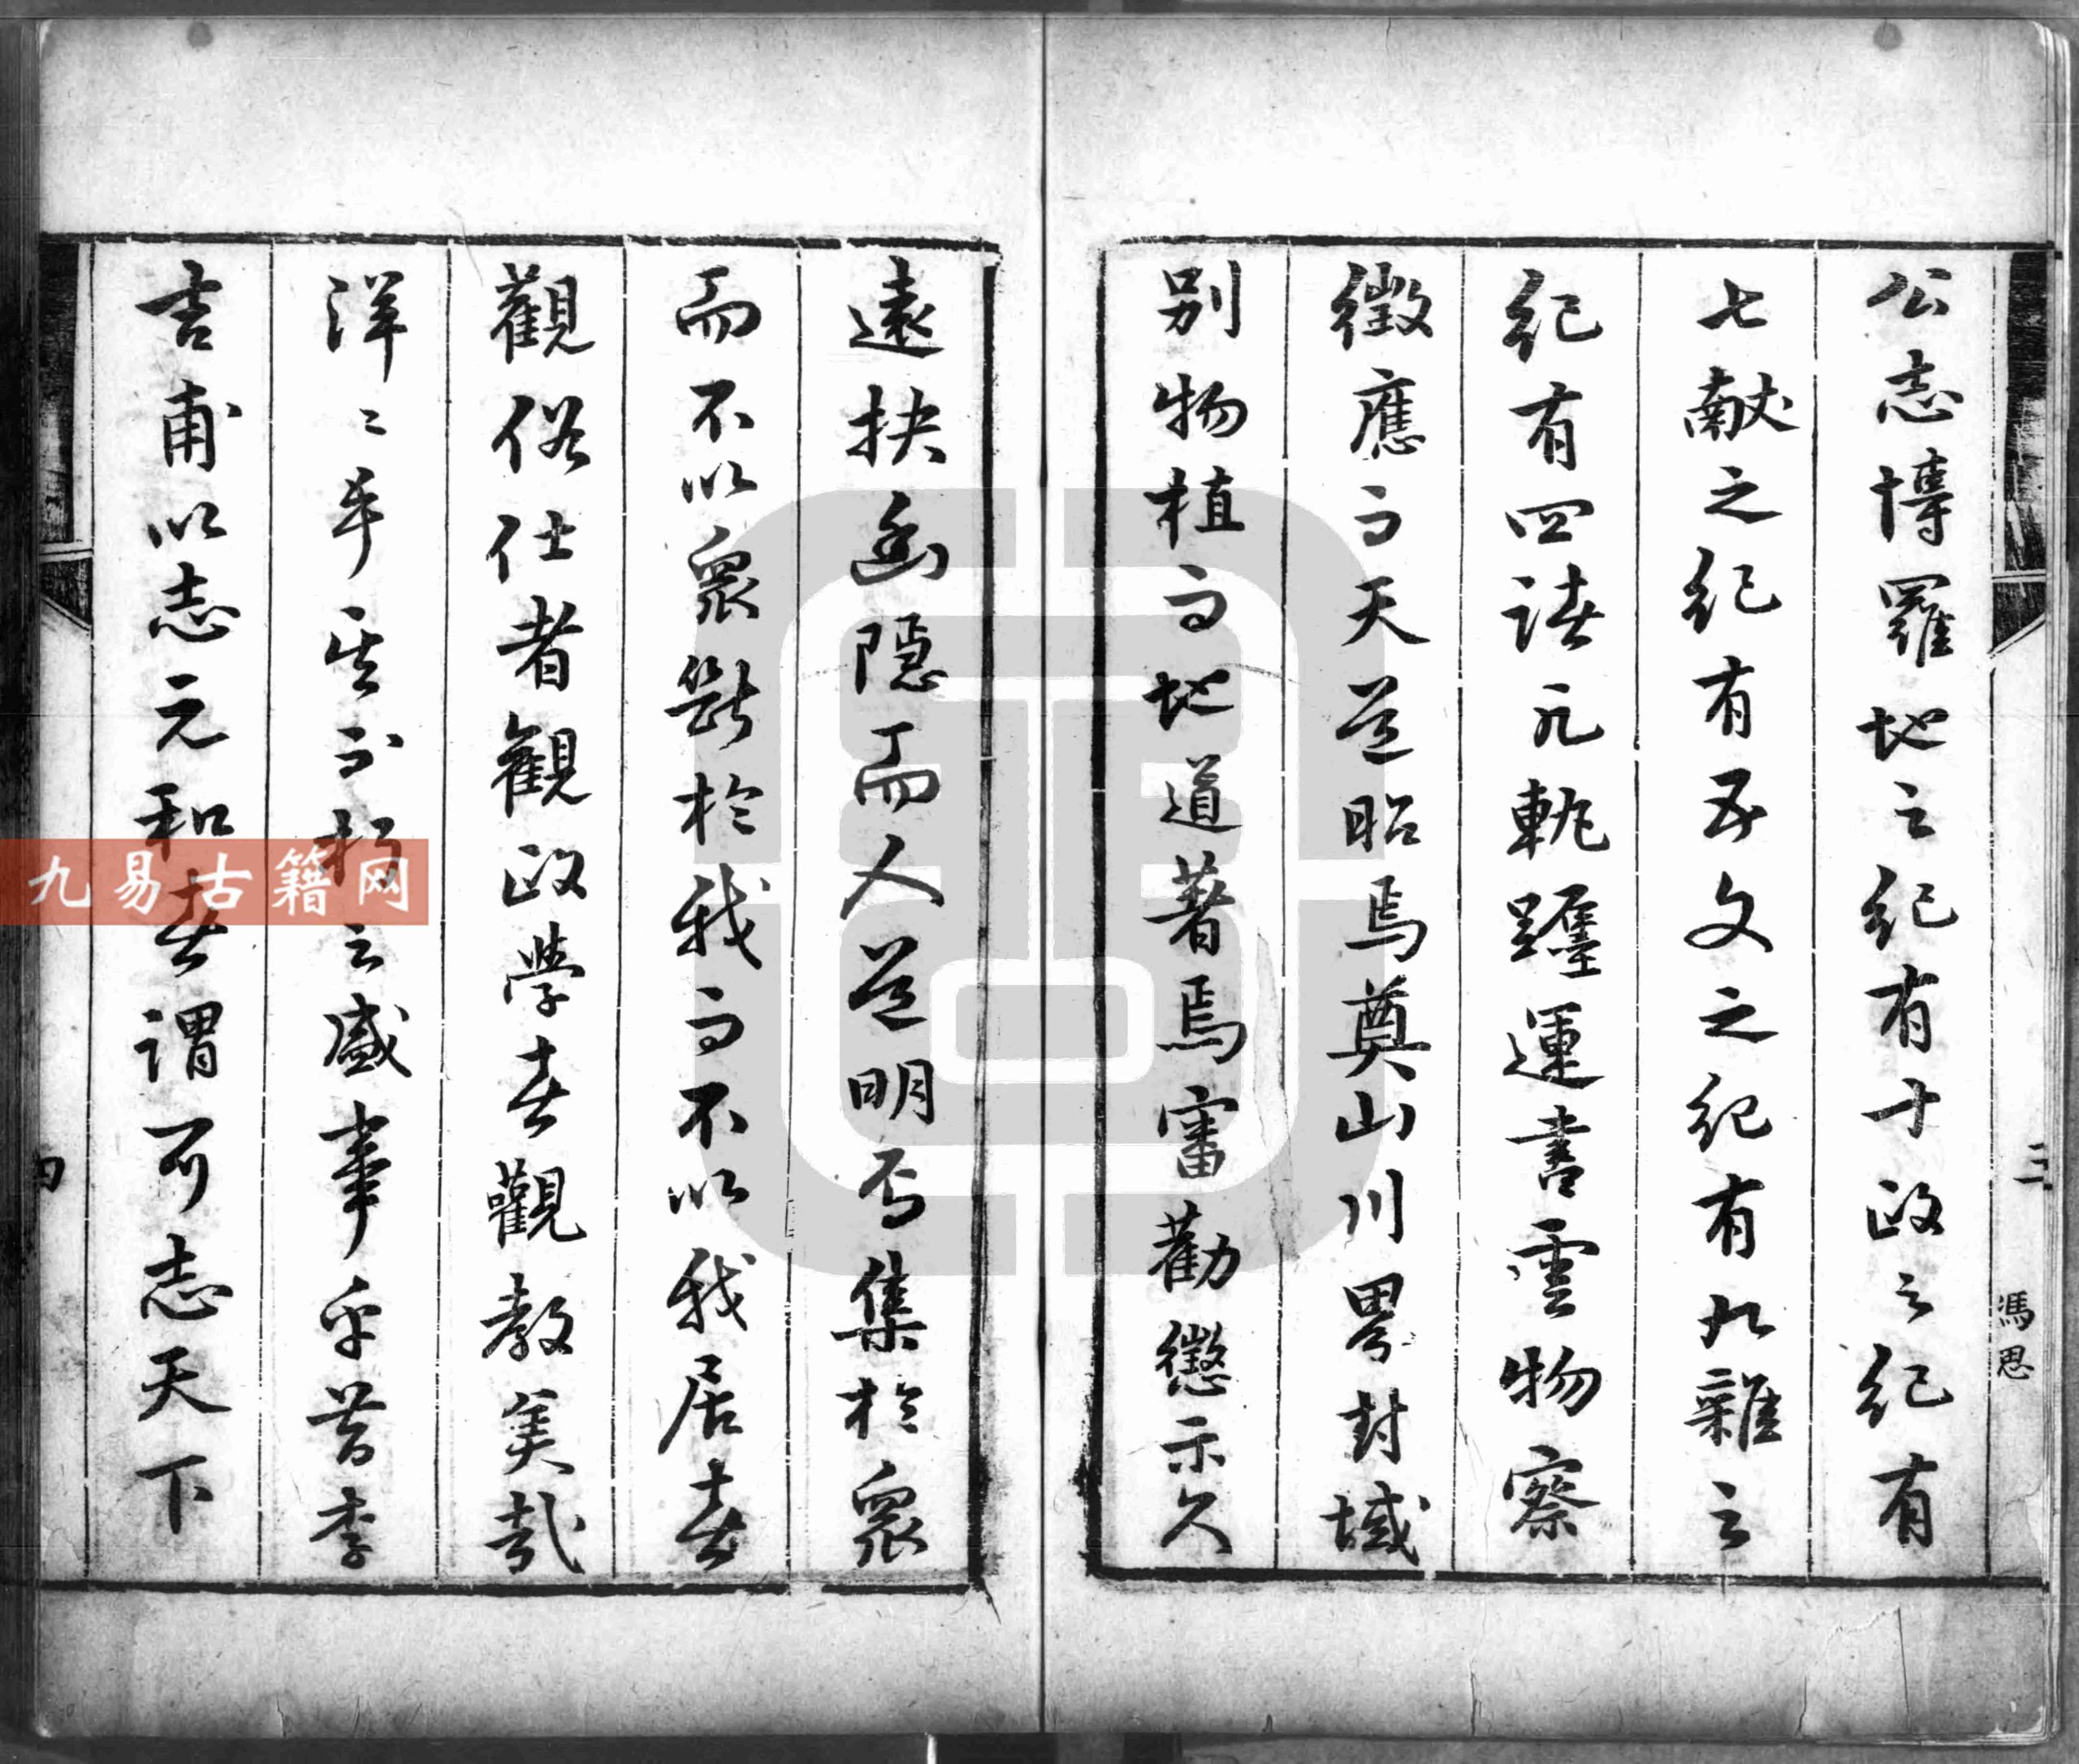 三
馮恩
公志博羅地之紀有十政之紀有
七献之紀有五文之紀有九雜之
紀有四諸凡軌躔運書雲物察
徵應而天道昭焉奠山川界封域
别物植而地道著焉審勸懲示久
遠抉幽隱而人道明焉集於衆
而不以衆斷於我而不以我居者
觀俗仕者觀政學者觀教美哉
洋〻乎不朽之盛事乎昔李
吉甫以志元和者謂可志天下
四
九易古籍网